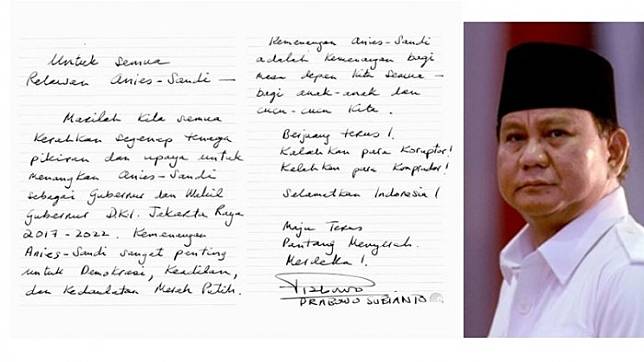 Untuk semua
Relawan Anies-Sandi —
Marilah kita semua
kerahkan segenap tenaga
pikiran dan upaya untuk
menangkan Anies-Sandi
sebagai Gubernur dan Wakil
Gubernur DKI. Jakarta Raya
2017-2022. Kemenangan
Anies-Sandi sangat penting
untuk Demokrasi, Keadilan,
dan Kedaulatan Merah Putih.
Kemenangan Anies-Sandi
adalah kemenangan bagi
masa depan kita semua —
bagi anak-anak dan
cucu-cucu kita.
Berjuang terus!
Kalahkan para Koruptor!
Kalahkan para Komprador!
Selamatkan Indonesia!
Maju Terus
Pantang Menyerah.
Merdeka!
PRABOWO SUBIANTO